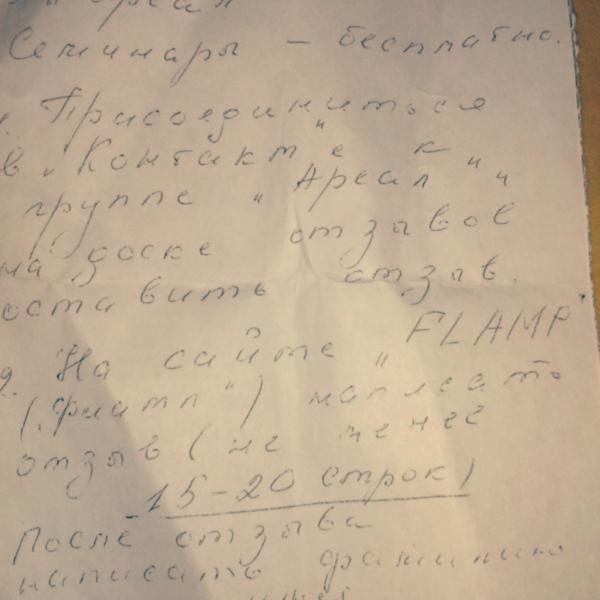 Ареал
Семинары – бесплатно.
Присоединиться
в „Контакт"е к
группе „Ареал" „
на доске отзывов
оставить отзыв.
2. На сайте „FLAMP"
(„Фламп") написать
отзыв (не менее
15-20 строк)
После отзыва
написать фамилию